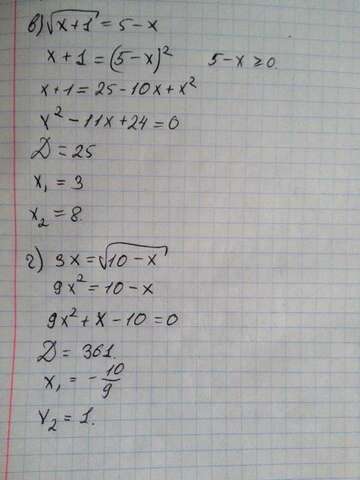 в) √(x+1) = 5-x
x+1 = (5-x)² 5-x ≥ 0.
x+1 = 25-10x+x²
x²-11x+24=0
D = 25
x₁ = 3
x₂ = 8.
г) 3x = √(10-x)
9x² = 10-x
9x²+x-10=0
D = 361.
x₁ = -10/9
x₂ = 1.